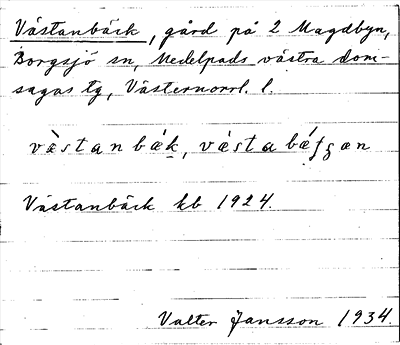 Västanbäck, gård på 2 Magdbyn,
Borgsjö sn, Medelpads västra dom-
sagas tg, Västernorrl. l.
västanbäk, västabäʃʒæn
Västanbäck kb 1924.
Valter Jansson 1934.